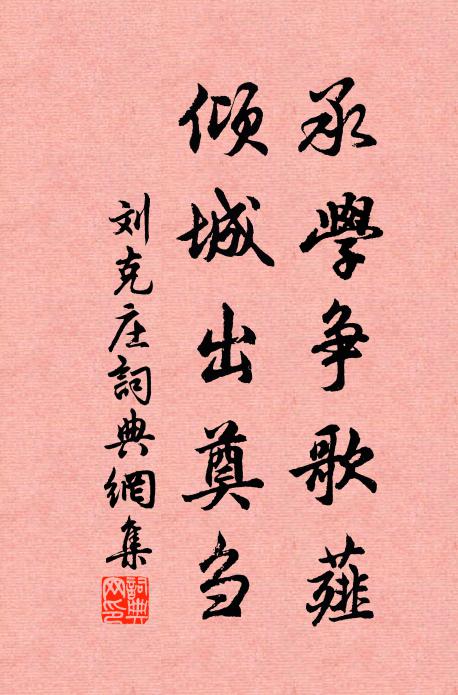 承學争歌薤
倾城出奠刍
刘克庄詞典網集
詞典网印